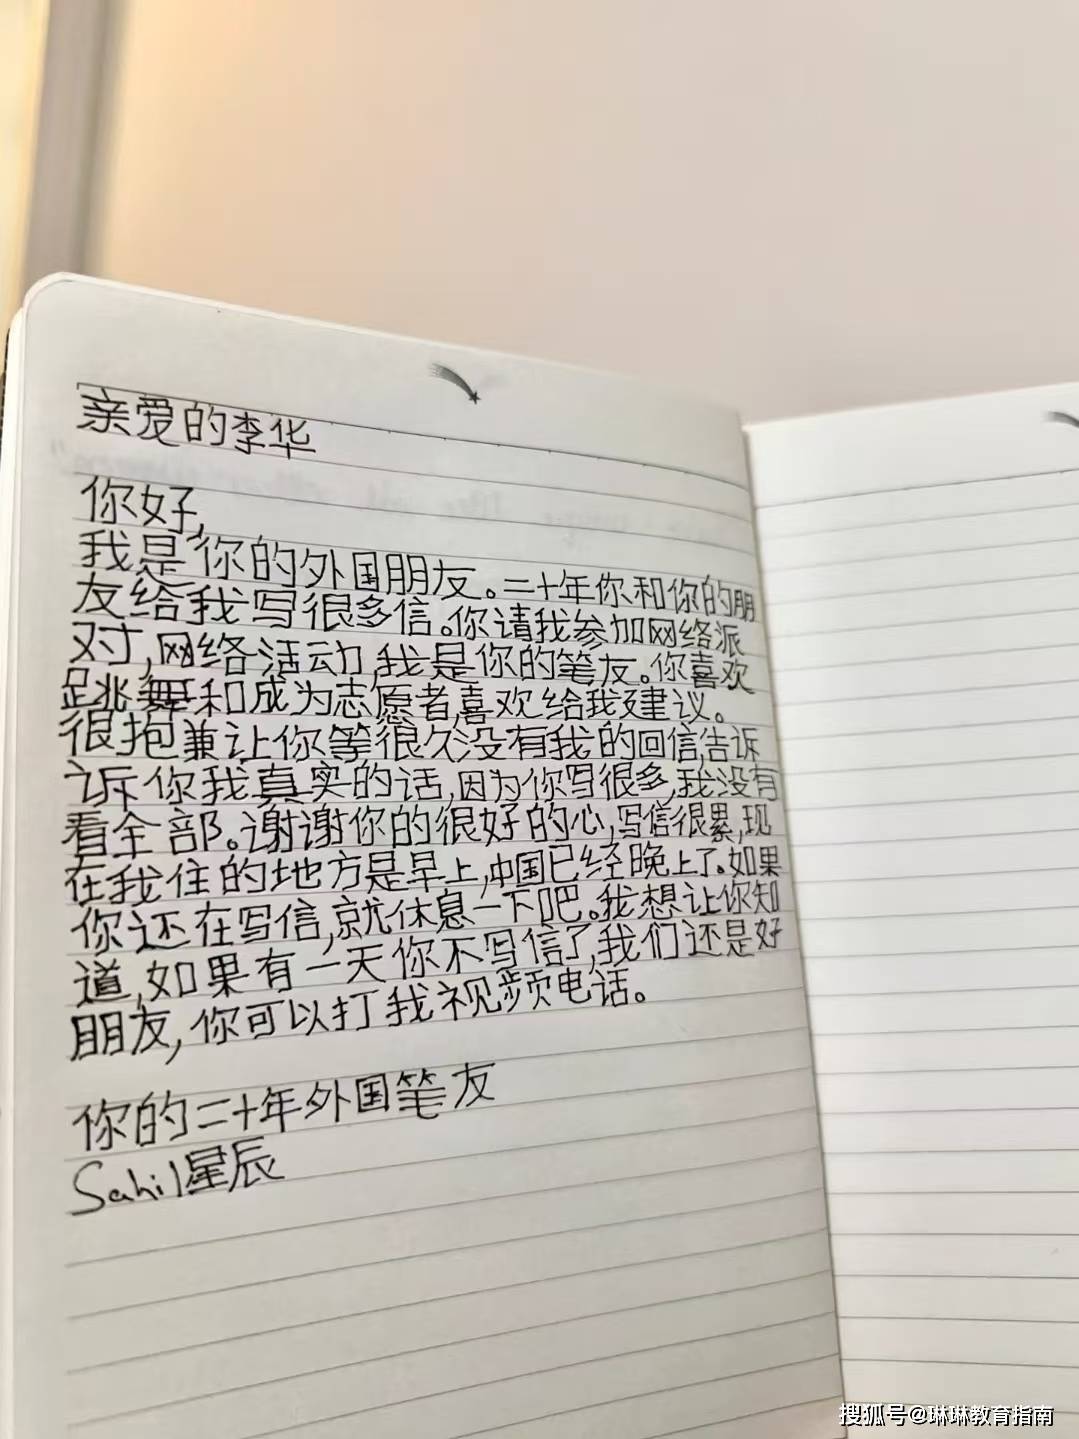 亲爱的李华
你好,
我是你的外国朋友。二十年你和你的朋
友给我写很多信。你请我参加网络派
对,网络活动,我是你的笔友。你喜欢
跳舞和成为志愿者,喜欢给我建议。
很抱兼让你等很久没有我的回信,告诉
诉你我真实的话,因为你写很多,我没有
看全部。谢谢你的很好的心,写信很累,现
在我住的地方是早上,中国已经晚上了。如果
你还在写信,就休息一下吧。我想让你知
道,如果有一天你不写信了,我们还是好
朋友,你可以打我视频电话。
你的二十年外国笔友
Sahil星辰
搜狐号@琳琳教育指南